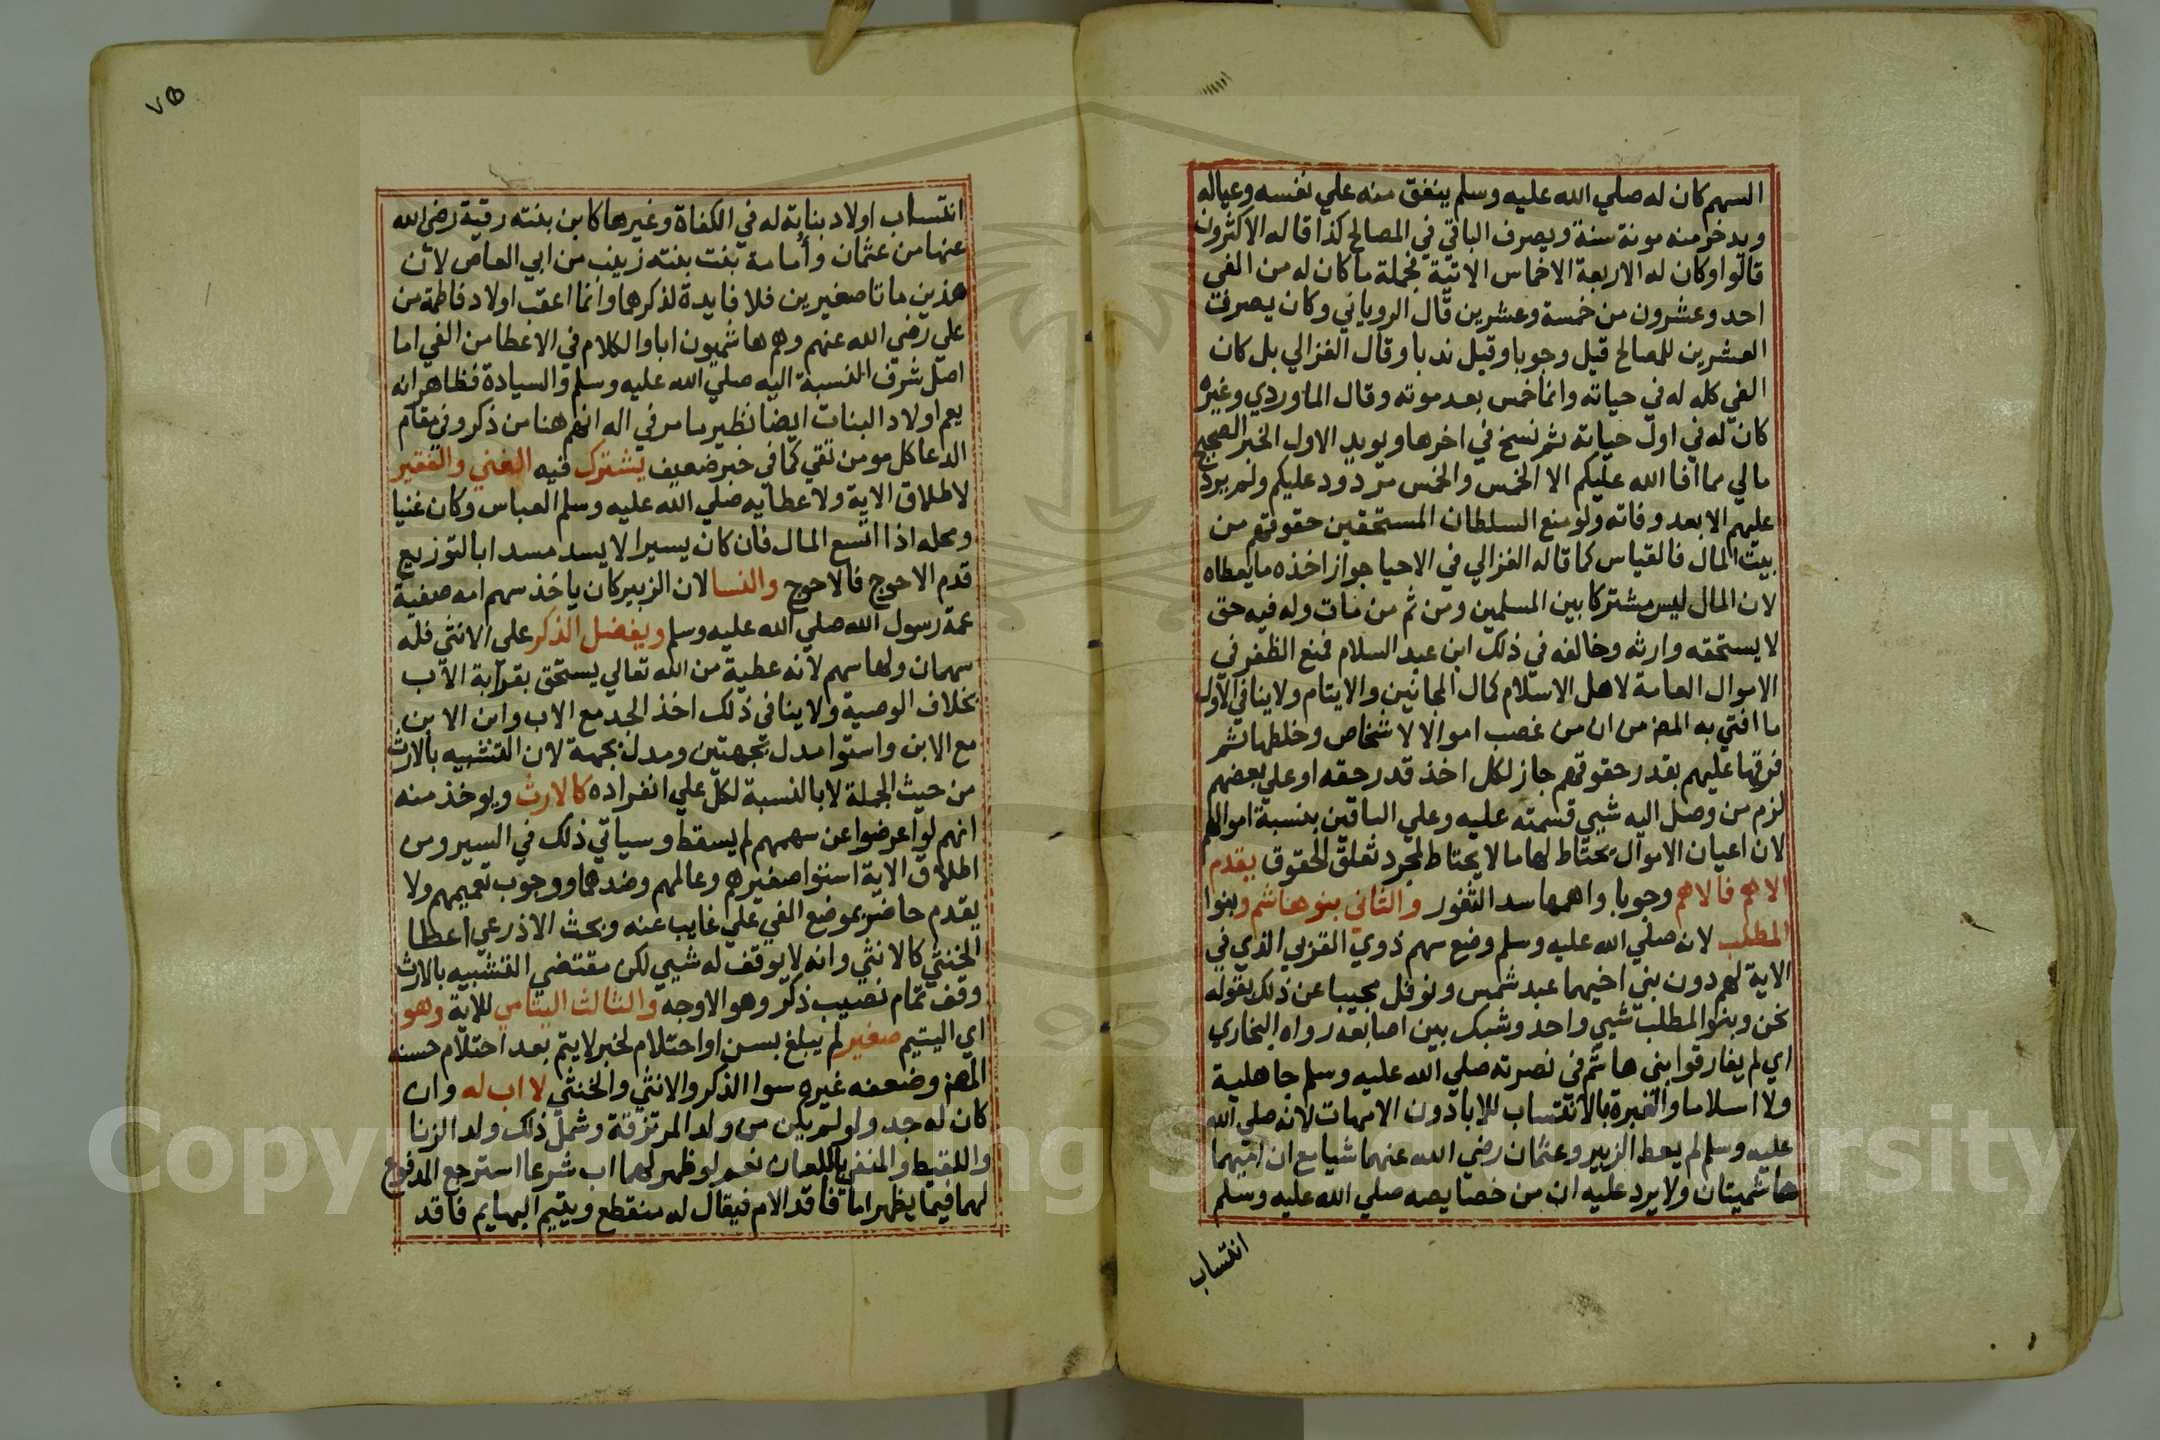 السهم كان له صلي الله عليه وسلم ينفق منه علي نفسه وعياله
ويدخر منه مونة سنة ويصرف الباقي في المصالح كذا قاله الاكثرون
قالوا وكان له الاربعة الاخماس الاتية فجملة ما كان له من الفي
احد وعشرون من خمسة وعشرين قال الروياني وكان يصرف
العشرين للمصالح قيل وجوبا وقيل ندبا وقال الغزالي بل كان
الفي كله له في حياته وانما خمس بعد موته وقال الماوردي وغيره
كان له في اول حياته ثم نسخ في اخرها ويويد الاول الخبر الصحيح
مالي مما افا الله عليكم الا الخمس والخمس مردود عليكم ولم يرد
عليهم الا بعد وفاته ولو منع السلطان المستحقين حقوقهم من
بيت المال فالقياس كما قاله الغزالي في الاحيا جواز اخذه ما يعطاه
لان المال ليس مشتركا بين المسلمين ومن ثم من مات وله فيه حق
لا يستحقه وارثه وخالفه في ذلك ابن عبد السلام فمنع الظفر في
الاموال العامة لاهل الاسلام كمال المجانين والايتام ولا ينافي الاول
ما افتي به المصنف من ان من غصب اموالا لاشخاص وخلطها ثم
فرقها عليهم بقدر حقوقهم جاز لكل اخذ قدر حقه او علي بعضهم
لزم من وصل اليه شيي قسمته عليه وعلي الباقين بنسبة اموالهم
لان اعيان الاموال يحتاط لها ما لا يحتاط لمجرد تعلق الحقوق يقدم
الاهم فالاهم وجوبا واهمها سد الثغور والثاني بنو هاشم وبنوا
المطلب لانه صلي الله عليه وسلم وضع سهم ذوي القربي الذي في
الاية لهم دون بني اخيهما عبد شمس ونوفل مجيبا عن ذلك بقوله
نحن وبنو المطلب شيي واحد وشبك بين اصابعه رواه البخاري
اي لم يفارقوا بني هاشم في نصرته صلي الله عليه وسلم جاهلية
ولا اسلاما والعبرة بالانتساب للابا دون الامهات لانه صلي الله
عليه وسلم لم يعط الزبير وعثمان رضي الله عنهما شيا مع ان اميهما
هاشميتان ولا يرد عليه ان من خصايصه صلي الله عليه وسلم
انتساب
انتساب اولاد بناته له في الكفاة وغيرها كابن بنته رقية رضي الله
عنها من عثمان وأمامة بنت بنته زينب من ابي العاص لان
هذين ماتا صغيرين فلا فايدة لذكرهما وانما اعقب اولاد فاطمة من
علي رضي الله عنهم وهم هاشميون ابا والكلام في الاعطا من الفي اما
اصل شرف النسبة اليه صلي الله عليه وسلم والسيادة فظاهر انه
يعم اولاد البنات ايضا نظير ما مر في اله انهم هنا من ذكر وفي مقام
الدعا كل مومن تقي كما في خبر ضعيف يشترك فيه الغني والفقير
لاطلاق الاية ولاعطايه صلي الله عليه وسلم العباس وكان غنيا
ومحله اذا اتسع المال فان كان يسيرا لا يسد مسدا بالتوزيع
قدم الاحوج فالاحوج والنسا لان الزبير كان ياخذ سهم امه صفية
عمة رسول الله صلي الله عليه وسلم ويفضل الذكر علي الانثي فله
سهمان ولها سهم لانه عطية من الله تعالي يستحق بقرابة الاب
بخلاف الوصية ولا ينافي ذلك اخذ الجد مع الاب وابن الابن
مع الابن واستوا مدل بجهتين ومدل بجهة لان التشبيه بالارث
من حيث الجملة لا بالنسبة لكل علي انفراده كالارث ويوخذ منه
انهم لو اعرضوا عن سهمهم لم يسقط وسياتي ذلك في السير ومن
اطلاق الاية استوا صغيرهم وعالمهم وضدهما ووجوب تعميمهم ولا
يقدم حاضر بموضع الفي علي غايب عنه وبحث الاذرعي اعطا
الخنثي كالانثي وانه لا يوقف له شيي لكن مقتضي التشبيه بالارث
وقف تمام نصيب ذكر وهو الاوجه والثالث اليتامي للاية وهو
اي اليتيم صغير لم يبلغ بسن او احتلام لخبر لا يتم بعد احتلام حسنه
المصنف وضعفه غيره سوا الذكر والانثي والخنثي لا اب له وان
كان له جد ولو لم يكن من ولد المرتزقة وشمل ذلك ولد الزنا
واللقيط والمنفي باللعان نعم لو ظهر لهما اب شرعا استرجع المدفوع
لهما فيما يظهر اما فاقد الام فيقال له منقطع ويتيم البهايم فاقد
Copyright © King Saud University